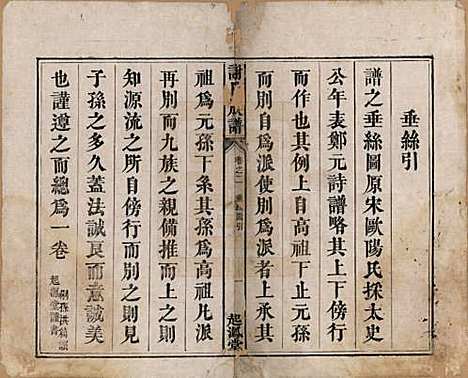 垂絲引
譜之垂絲圖原宋歐陽氏採太史
公年表鄭元詩譜略其上下傍行
而作也其例上自高祖下止元孫
而別自為派使別為派者上承其
謝氏
譜
卷之一
垂絲圖引
起源堂
祖為元孫下系其孫為高祖凡派
再別而九族之親備推而上之則
知源流之所自傍行而列之則見
子孫之多久蓋法誠良而意誠美
也謹遵之而總為一卷
嗣孫洪
起源堂謹書